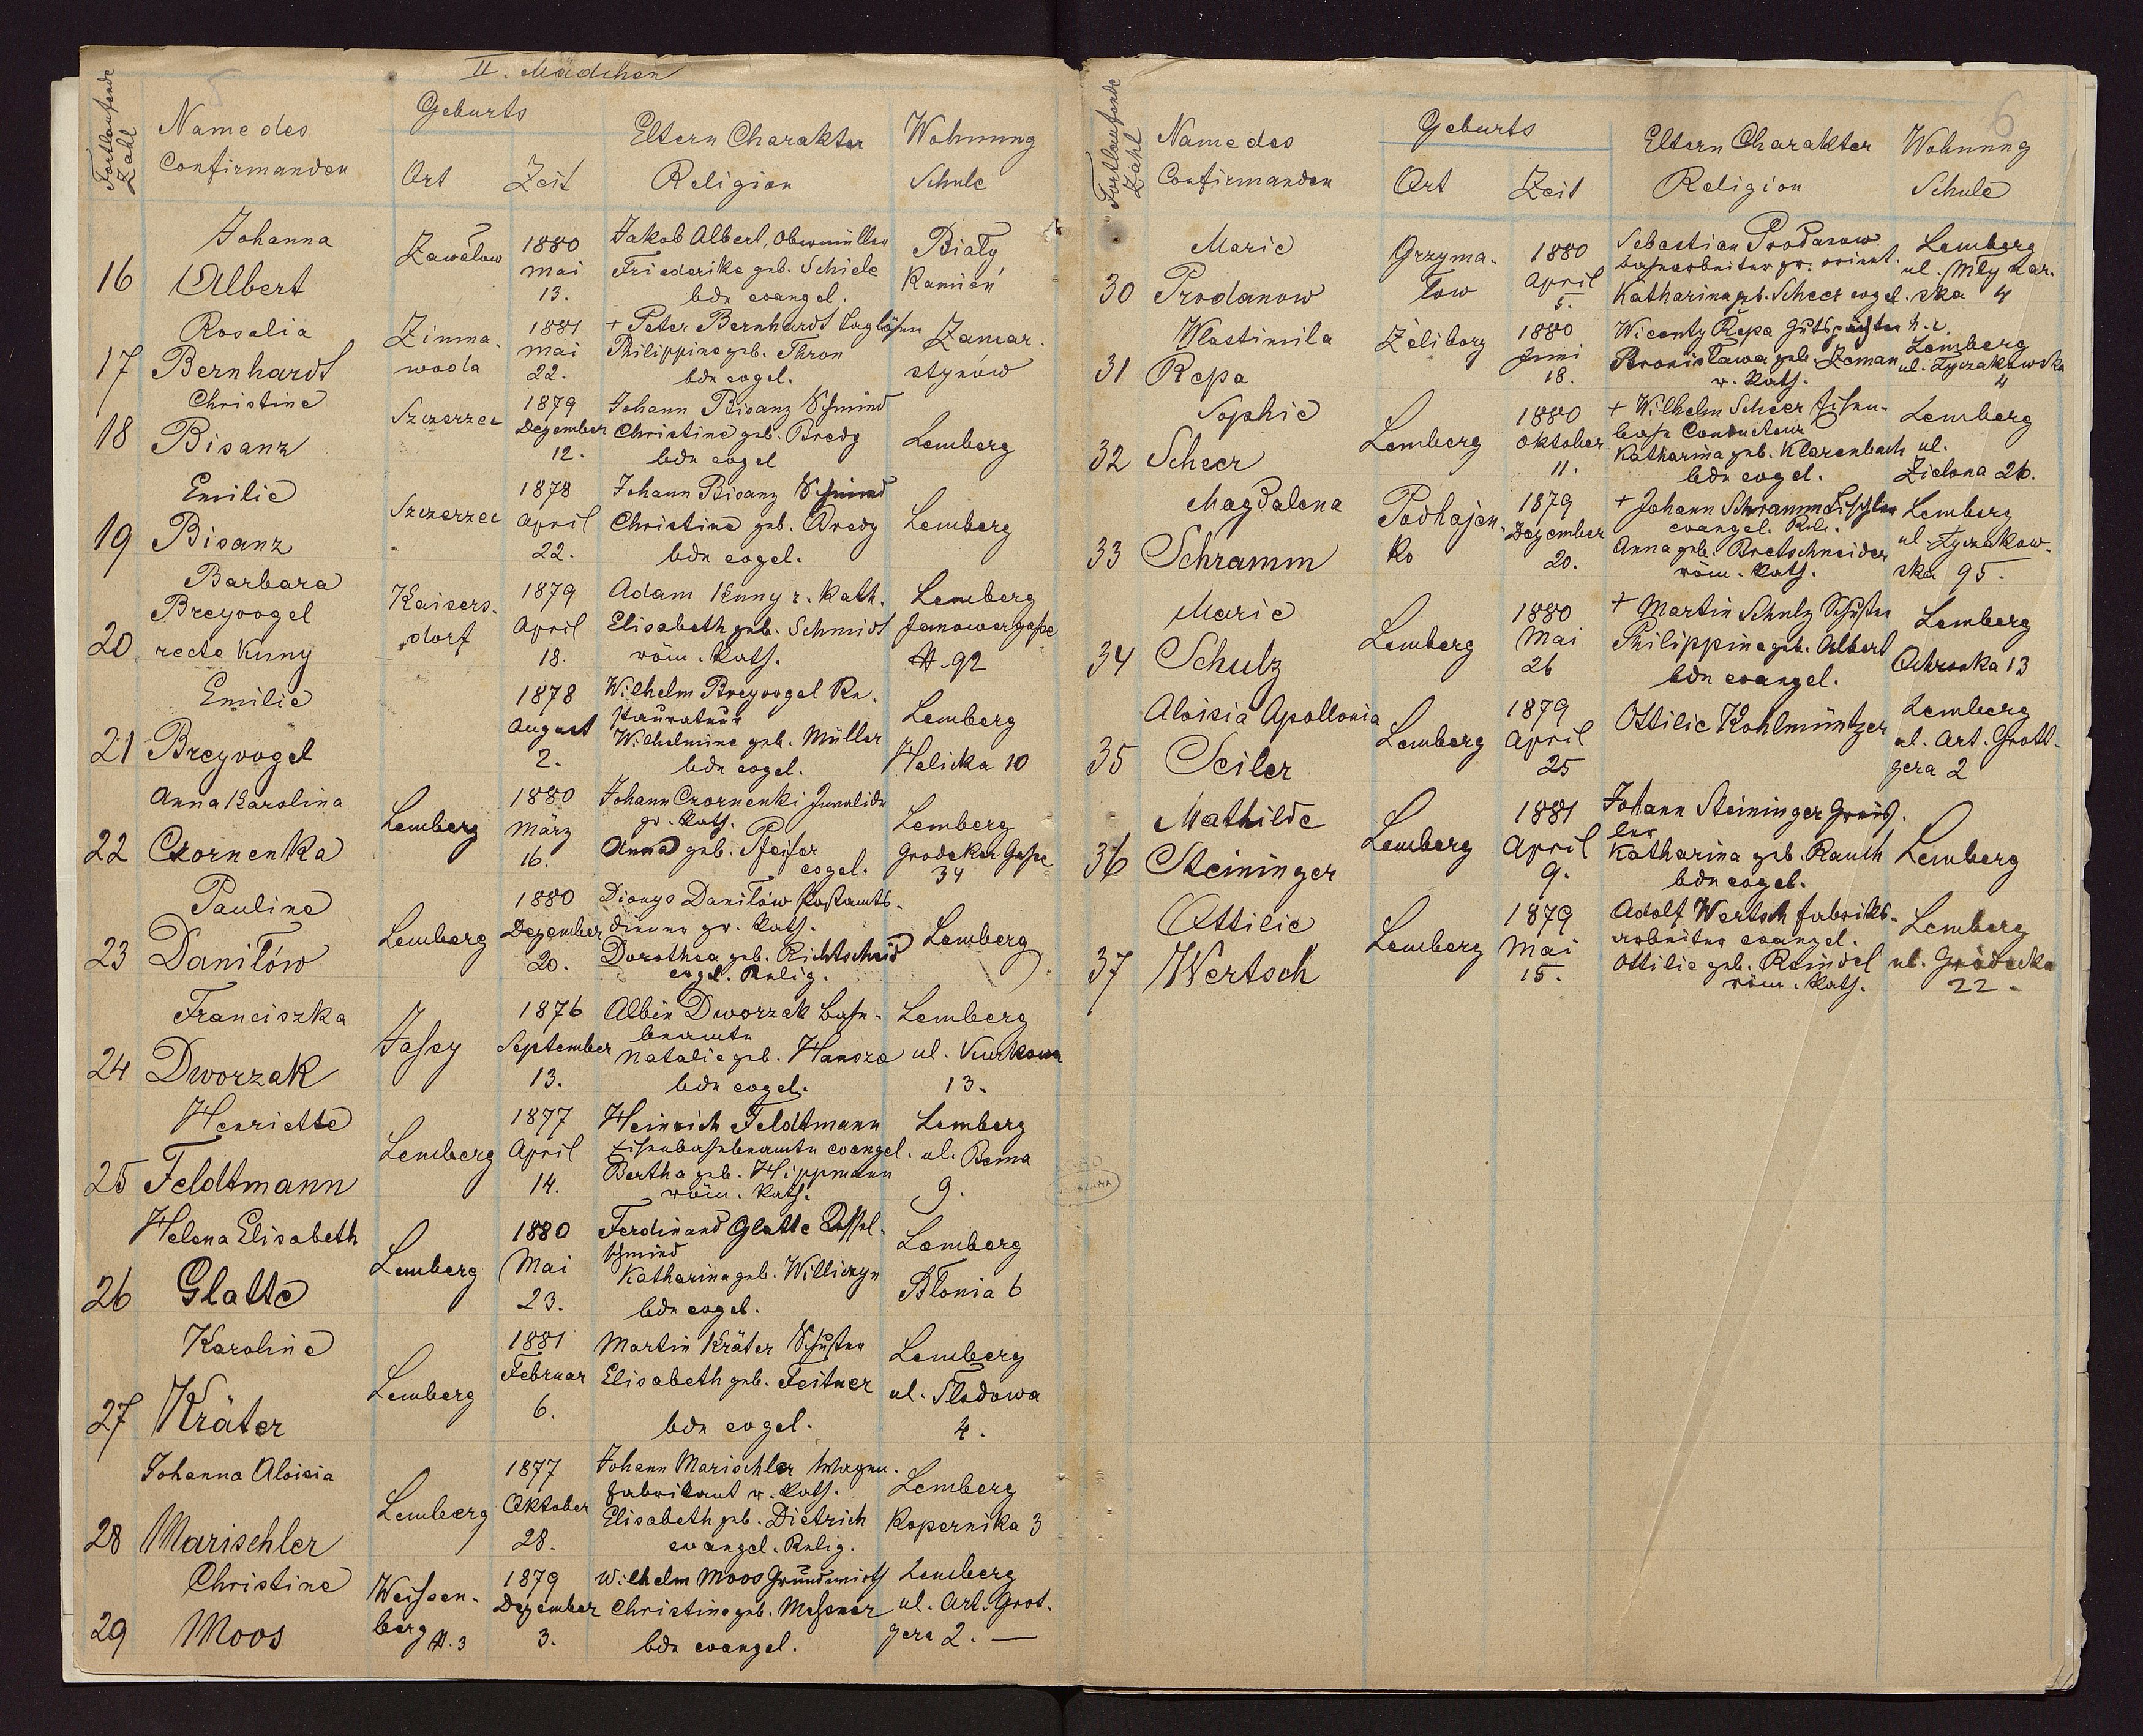 II. Mädchen
5
Fortlaufende Zahl
Name des Confirmanden
Geburts
Ort
Zeit
Eltern Charakter
Religion
Wohnung
Schule
16
Johanna
Albert
Zawałow
1880
Mai
13.
Jakob Albert, Obermüller
Friederike geb. Schiele
bde evangel.
Biały
Kamień
17
Rosalia
Bernhardt
Zimna-
woda
1881
Mai
22.
+ Peter Bernhardt Taglöhner
Philippine geb. Thron
bde evgel.
Zamar-
stynów
18
Christine
Bisanz
Szczerzec
1879
Dezember
12.
Johann Bisanz Schmied
Christine geb. Bredy
bde evgel
Lemberg
19
Emilie
Bisanz
Szczerzec
1878
April
22.
Johann Bisanz Schmied
Christine geb. Bredy
bde evgel.
Lemberg
20
Barbara
Breyvogel
recte Kuny
Kaisers-
dorf
1879
April
18.
Adam Kuny r. Kath.
Elisabeth geb. Schmidt
röm. Kath.
Lemberg
Janowergasse
N. 92
21
Emilie
Breyvogel
1878
August
2.
Wilhelm Breyvogel Re-
staurateur
Wilhelmine geb. Müller
bde evgel.
Lemberg
Halicka 10
22
Anna Karolina
Czornenka
Lemberg
1880
März
16.
Johann Czornenki Invalide
gr. Kath.
Anna geb. Pfeifer
evgel.
Lemberg
Grodeker Gasse
34
23
Pauline
Daniłów
Lemberg
1880
Dezember
20.
Dionys Daniłów Postamts-
diener gr. Kath.
Dorothea geb. Richtscheid
evgl. Relig.
Lemberg
24
Franciszka
Dworzak
Jassy
1876
September
13.
Albin Dworzak Bahn-
beamte
Natalie geb.
bde evgel.
Lemberg
ul. Kurkowa
13.
25
Henriette
Feldtmann
Lemberg
1877
April
14.
Heinrich Feldtmann
Eisenbahnbeamte evangel.
Bertha geb. Hippmann
röm. Kath.
Lemberg
ul. Bema
9.
26
Helena Elisabeth
Glatte
Lemberg
1880
Mai
23.
Ferdinand Glatte Kessel-
schmied
Katharina geb. Williczyn
bde evgel.
Lemberg
Błonia 6
27
Karoline
Kräter
Lemberg
1881
Februar
6.
Martin Kräter Schuster
Elisabeth geb. Feitner
bde evgel.
Lemberg
ul. Śladowa
4.
28
Johanna Aloisia
Marischler
Lemberg
1877
Oktober
28.
Johann Marischler Wagen-
fabrikant r. Kath.
Elisabeth geb. Dietrich
evangel. Relig.
Lemberg
Kopernika 3
29
Christine
Moos
Weissen-
berg N. 3
1879
Dezember
3.
Wilhelm Moos Grundwirth
Christine geb. Messner
bde evangel.
Lemberg
ul. Art. Grot-
gera 2. —
6
Fortlaufende Zahl
Name des
Confirmanden
Geburts
Ort
Zeit
Eltern Charakter
Religion
Wohnung
Schule
30
Marie
Prodanow
Grzyma-
low
1880
April
5.
Sebastian Prodanow
Bahnarbeiter gr. orient.
Katharina geb. Scheer evgel.
Lemberg
ul. Młynar-
ska 4
31
Wlastimila
Repa
Żeliborg
1880
Juni
18.
Wicenty Repa Gutspächter h. c.
Bronisława geb. Zeman
r. Kath.
Lemberg
ul. Łyczakowska
4
32
Sophie
Scheer
Lemberg
1880
Oktober
11.
+ Wilhelm Scheer Eisen-
bahn Conducteur
Katharina geb. Klarenbach
bde evgel.
Lemberg
ul.
Zielona 26.
33
Magdalena
Schramm
Podhajen-
ko
1879
Dezember
20.
+ Johann Schramm Tischler
evangel. Rel.
Anna geb. Bretschneider
röm. Kath.
Lemberg
ul. Łyczakow-
ska 95.
34
Marie
Schulz
Lemberg
1880
Mai
26
+ Martin Schulz Schuster
Philippine geb. Albert
bde evangel.
Lemberg
13
35
Aloisia Apollonia
Seiler
Lemberg
1879
April
25
Ottilie Kohlmüntzer
Lemberg
ul. Art. Grott-
gera 2
36
Mathilde
Steininger
Lemberg
1881
April
9.
Johann Steininger Greiss-
ler
Katharina geb. Rauch
bde evgel.
Lemberg
37
Ottilie
Wertsch
Lemberg
1879
Mai
15.
Adolf Wertsch Fabriks-
arbeiter evangel.
Ottilie geb. Reindel
röm. Kath.
Lemberg
ul. Gródecka
22.